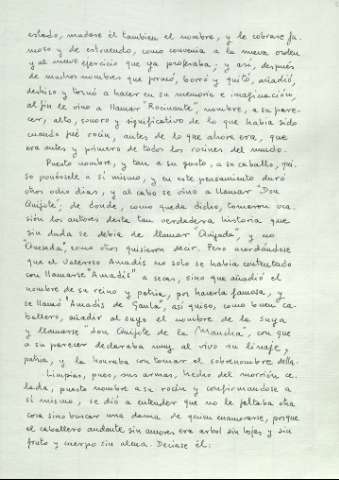 estado, mudase él tambien el nombre, y le cobrase fa-
moso y de estruendo, como convenia a la nueva orden
y al nuevo ejercicio que ya profesaba; y así, después
de muchos nombres que formó, borró y quitó, añadió,
deshizo y tornó a hacer en su memoria e imaginación,
al fin le vino a llamar "Rocinante", nombre, a su pare-
cer, alto, sonoro y significativo de lo que habia sido
cuando fué rocin, antes de lo que ahora era, que
era antes y primero de todos los rocines del mundo.
Puesto nombre, y tan a su gusto, a su caballo, qui-
so ponérsele a sí mismo, y en este pensamiento duró
otros ocho dias, y al cabo se vino a llamar "Don
Quijote"; de donde, como queda dicho, tomaron oca-
sión los autores desta tan verdadera historia que
sin duda se debia de llamar "Quijada", y no
"Quesada", como otros quisieron decir. Pero acordándose
que el valeroso Amadis no solo se habia contentado
con llamarse "Amadis" a secas, sino que añadió el
nombre de su reino y patria, por hacerla famosa, y
se llamó "Amadis de Gaula", así quiso, como buen ca-
ballero, añadir al suyo el nombre de la suya
y llamarse "don Quijote de la Mancha", con que
a su parecer declaraba muy al vivo su linaje,
patria, y la honraba con tomar el sobrenombre della.
Limpias, pues, sus armas, hecho del morrión ce-
lada, puesto nombre a su rocin y confirmandose a
sí mismo, se dió a entender que no le faltaba otra
cosa sino buscar una dama de quien enamorarse, porque
el caballero andante sin amores era arbol sin hojas y sin
fruto y cuerpo sin alma. Deciase él: